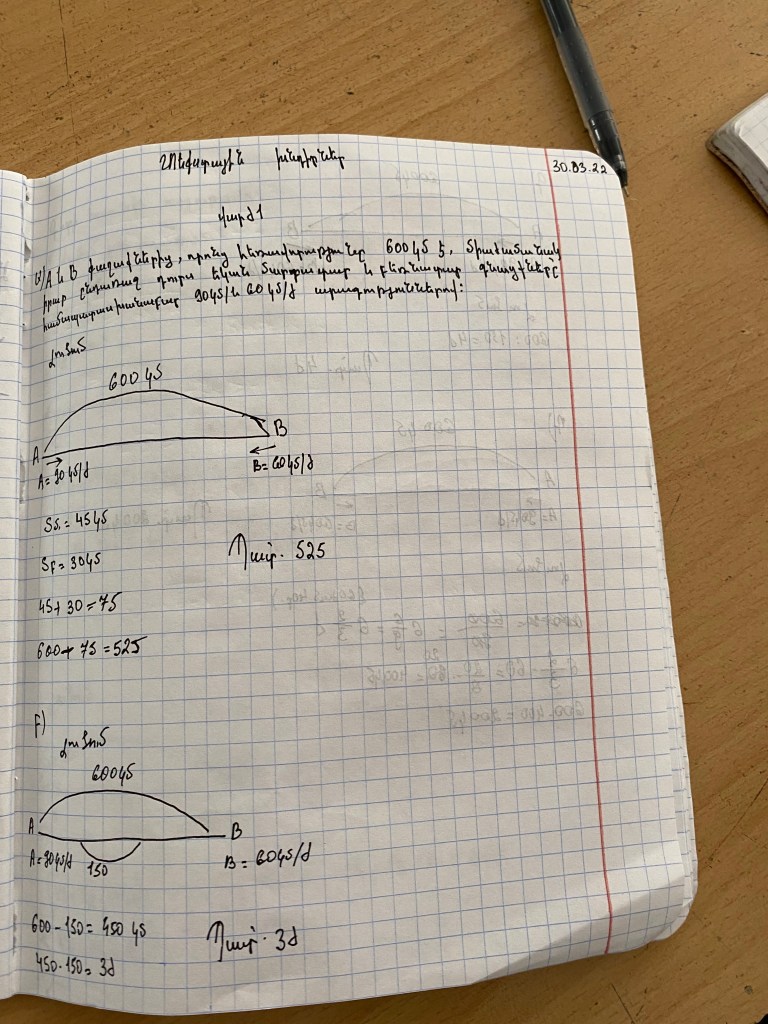 Մոնիտորային խնդիրներ
30.03.22
վարժ1
ա/A և B քաղաքներից, որոնց հեռավորությունը 600կմ է, միաժամանակ
իրար ընդառաջ դուրս եկան մարդատար և բեռնատար գնացքները
համապատասխանաբար 90կմ/և 60կմ/ժ արագություններով:
լուծում
600կմ
A
B
A=90կմ/ժ
B=60կմ/ժ
Sմ.=45կմ
Sբ=30կմ
Պատ. 525
45+30=75
600-75=525
բ)
լուծում
600կմ
A
B
A=90կմ/ժ
150
B=60կմ/ժ
600-150=450 կմ
Պատ. 3ժ
450.150=3ժ